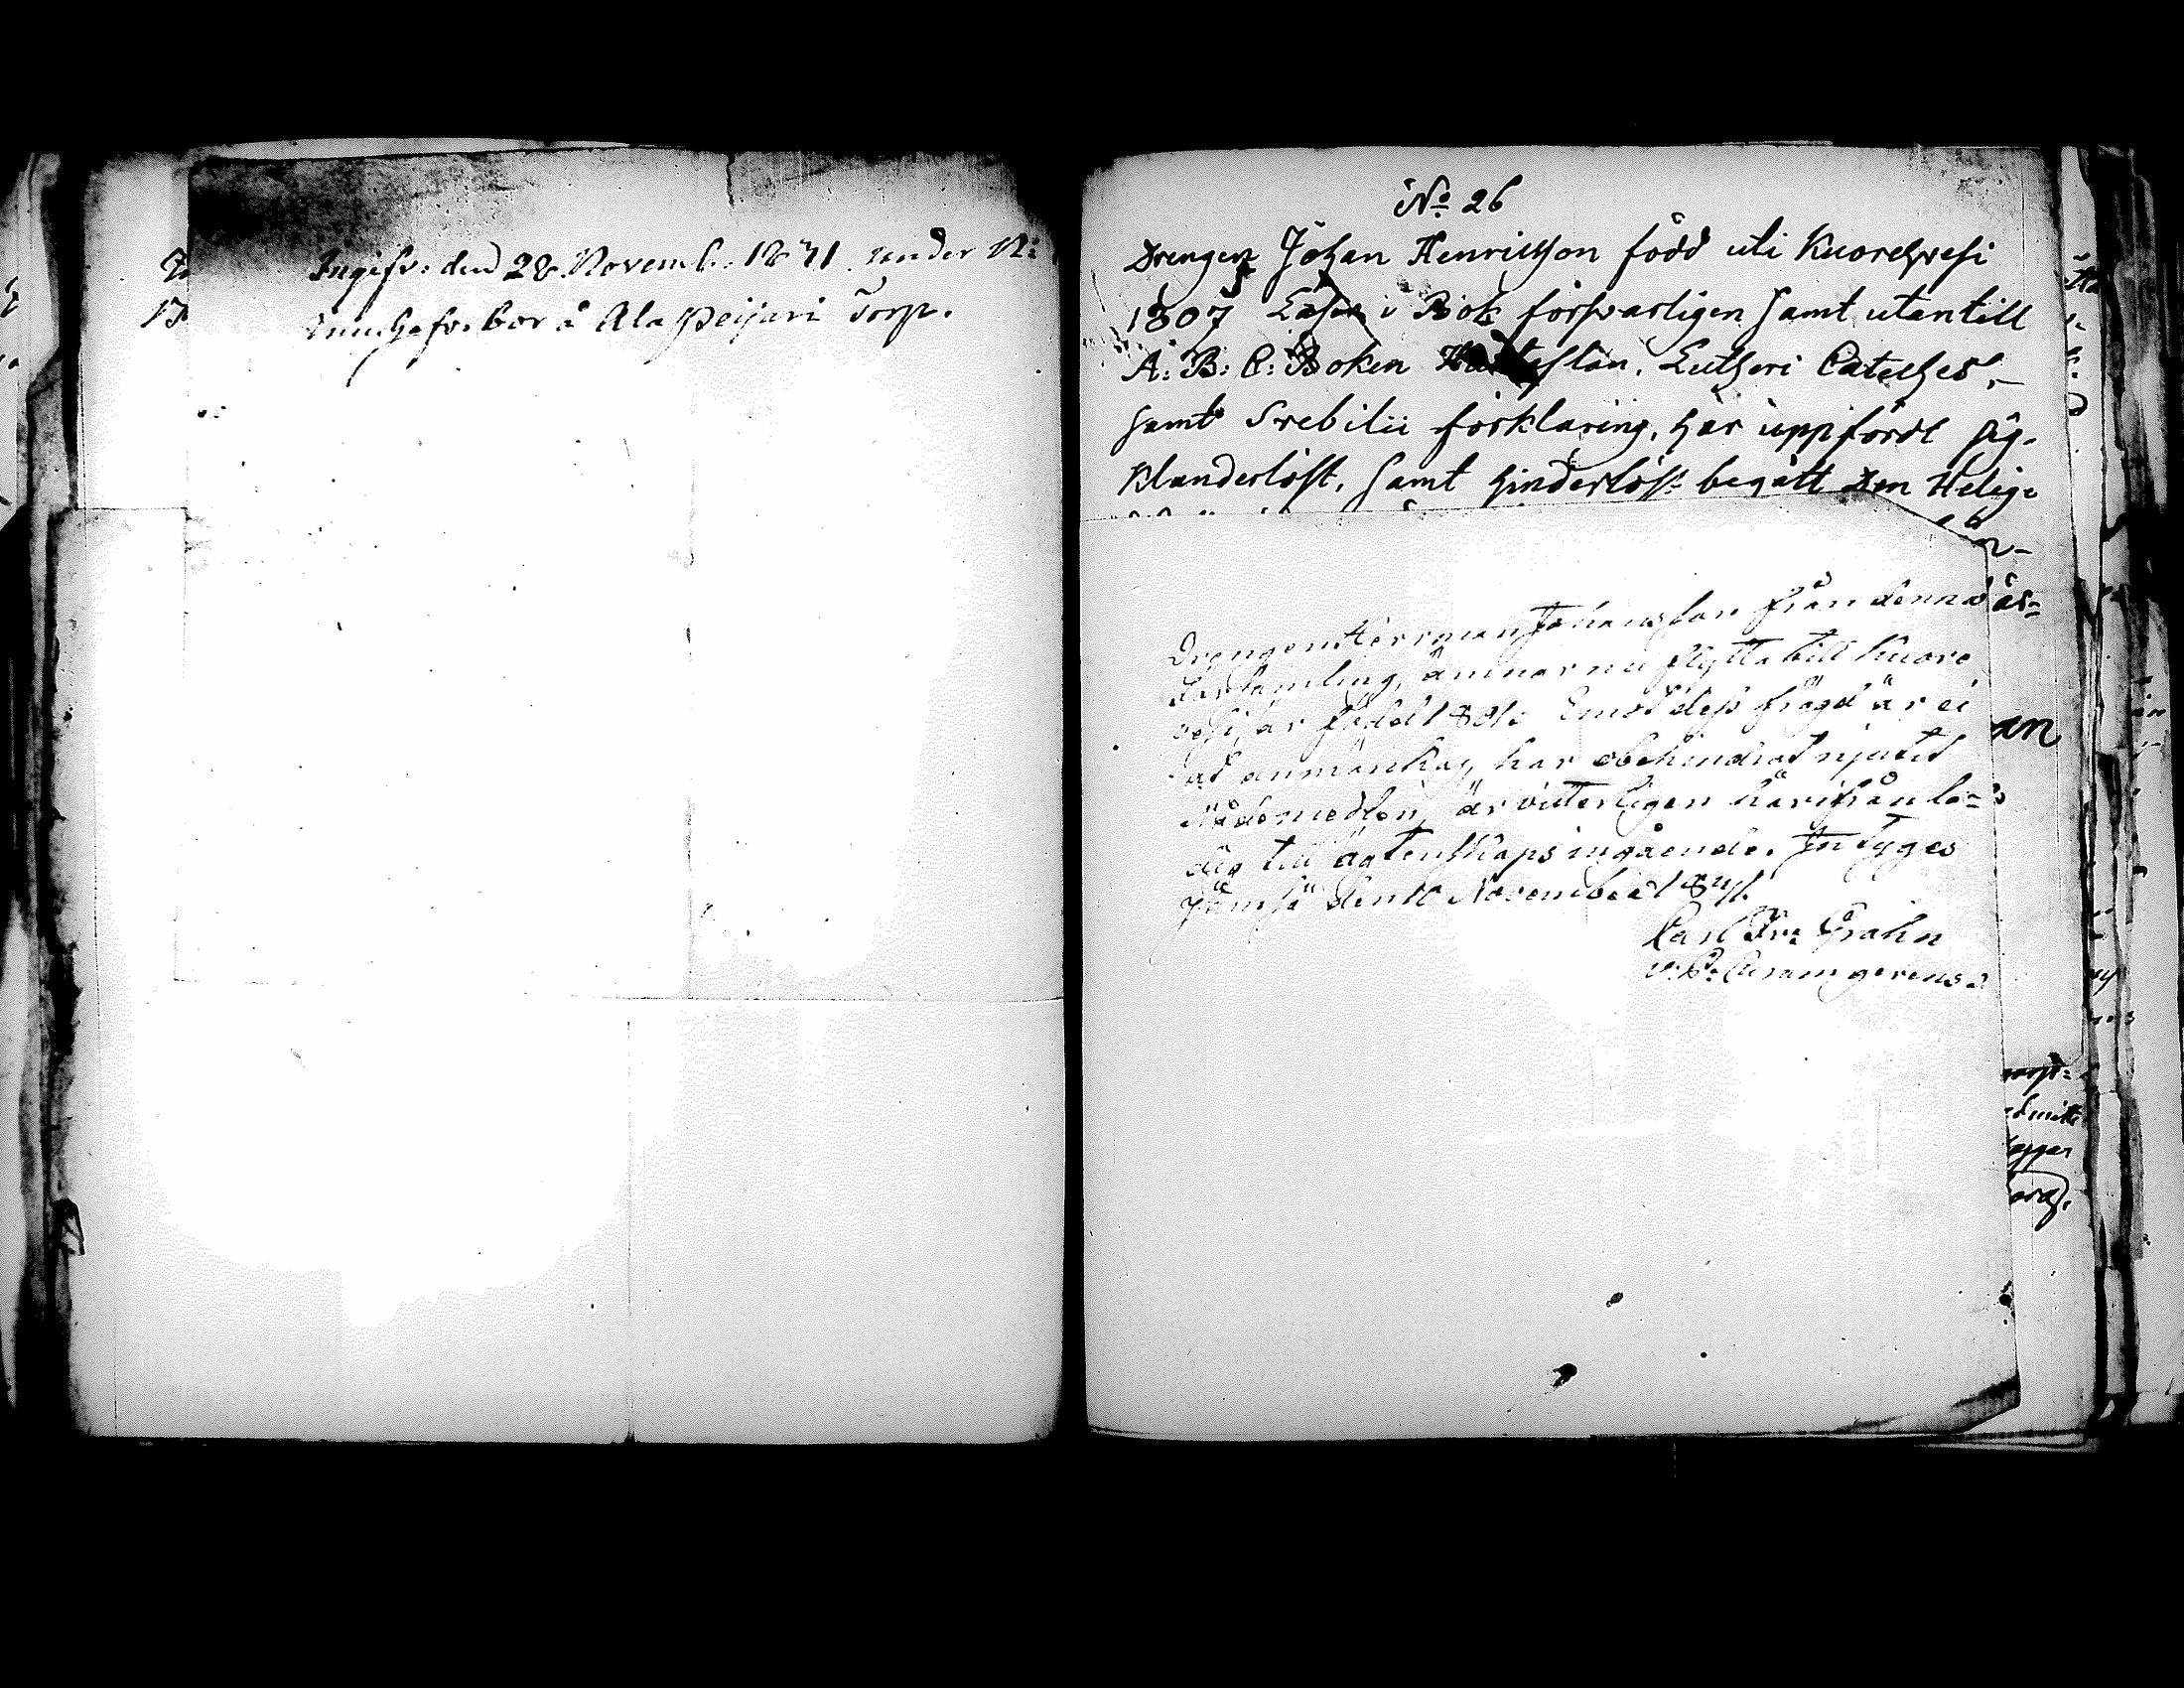 Ingifv: den 28. Novemb. 1841 under N:
innehafv. bor å Ala Peijari Torp.
No 26
Drengen Johan Henricsson född uti Kuorehvesi
1807 Läser i Bok försvarligen samt utantill
A: B: C: Boken Lutheri Cateches,
samt Svebilii förklaring, har uppfördt sig
Klanderlöst, samt hinderlöst begått Den Helige
Drengen Herrman Johansson från denna
Församling, ämnar nu flytta till Kuore
vesi, är född 18 Emot dess frägd är ei
at anmärka, har obehindrat njutit
Nådemedlen, är vitterligen härifrån le-
dig till ägtenskaps ingående. Intyges
Jämsä den 10 November 1841.
Carl Fr: Grahn
v. P. Curam gerens
an